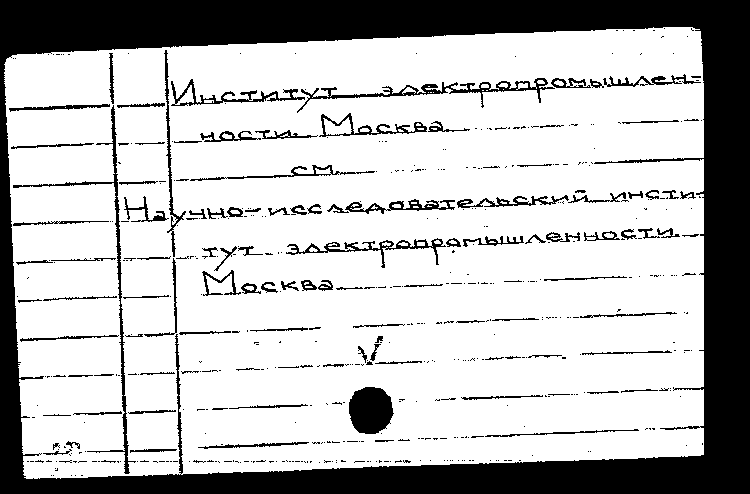 Институт электропромышлен-
ности. Москва.
см.
Научно-исследовательский инсти-
тут электропромышленности.
Москва.
V